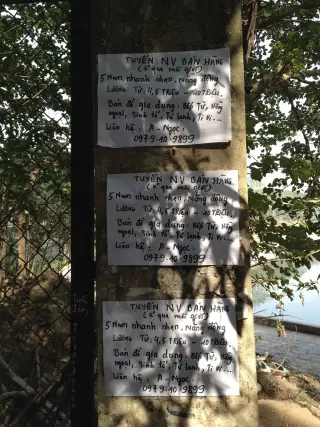 TUYỂN NV BÁN HÀNG
(K° qua môi giới)
5 Nam nhanh nhẹn, Năng động
Lương Từ 4,5 Triệu - 10 TRIỆU.
Bán đồ gia dụng: Bếp Từ, Hồng
ngoại, Sinh tố, Tủ lạnh, Ti Vi...
Liên hệ: A - Ngọc:
0979.10.9899
TUYỂN NV BÁN HÀNG
(K° qua môi giới)
5 Nam nhanh nhẹn, Năng động
Lương Từ 4,5 Triệu - 10 TRIỆU.
Bán đồ gia dụng: Bếp Từ, Hồng
ngoại, Sinh tố, Tủ lạnh, Ti Vi...
Liên hệ: A - Ngọc:
0979.10.9899
TUYỂN NV BÁN HÀNG
(K° qua môi giới)
5 Nam nhanh nhẹn, Năng động
Lương Từ 4,5 Triệu - 10 TRIỆU.
Bán đồ gia dụng: Bếp Từ, Hồng
ngoại, Sinh tố, Tủ lạnh, Ti Vi...
Liên hệ: A - Ngọc:
0979.10.9899